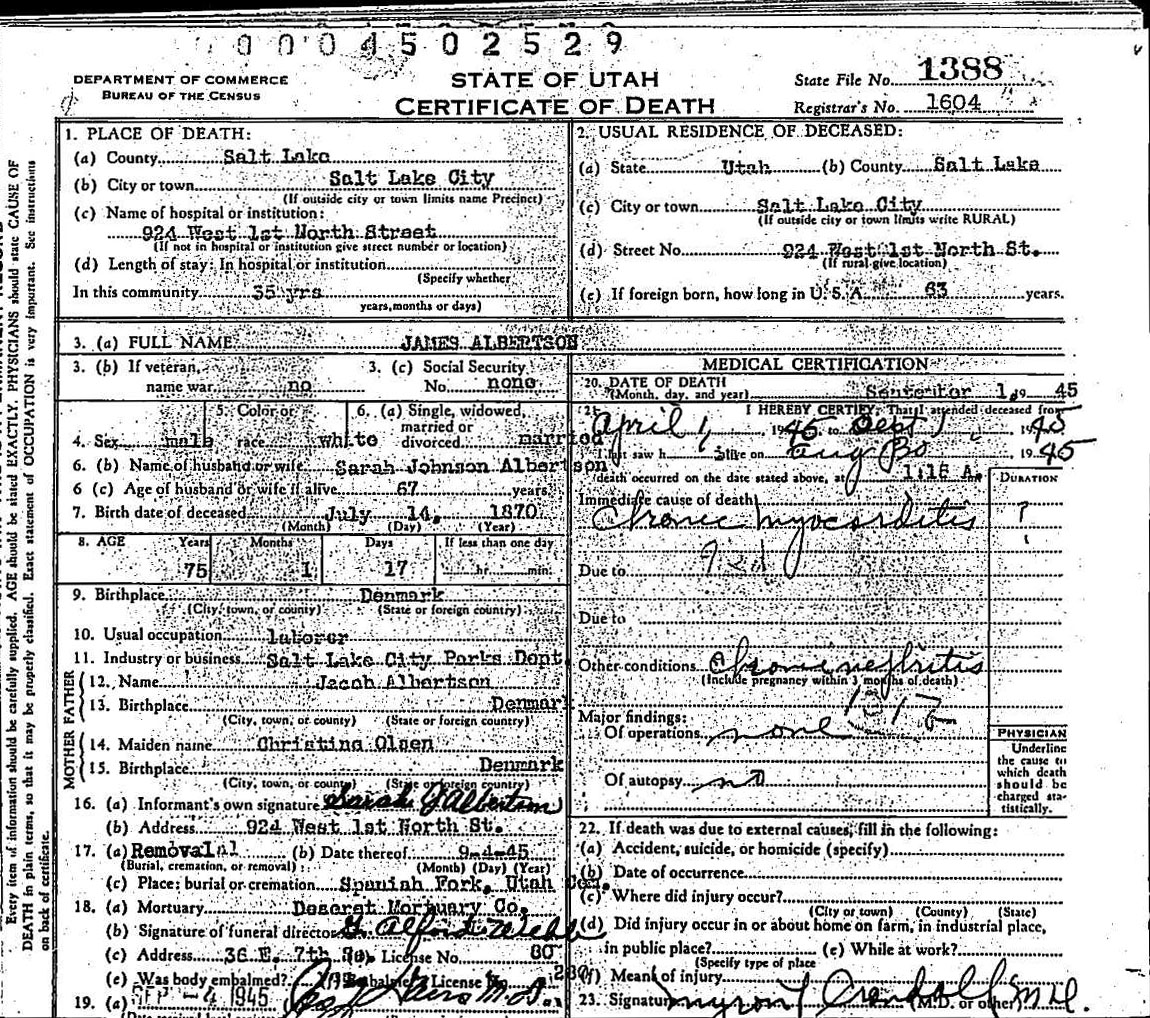 0004502529
DEPARTMENT OF COMMERCE
BUREAU OF THE CENSUS
STATE OF UTAH
CERTIFICATE OF DEATH
State File No. 1388
Registrar's No. 1604
Every item of information should be carefully supplied. AGE should be stated EXACTLY. PHYSICIANS should state CAUSE OF
DEATH in plain terms, so that it may be properly classified. Exact statement of OCCUPATION is very important. See instructions
on back of certificate.
1. PLACE OF DEATH:
(a) County Salt Lake
(b) City or town Salt Lake City
(If outside city or town limits name Precinct)
(c) Name of hospital or institution:
924 West 1st North Street
(If not in hospital or institution give street number or location)
(d) Length of stay: In hospital or institution
(Specify whether
In this community 35 yrs
years, months or days)
2. USUAL RESIDENCE OF DECEASED:
(a) State Utah (b) County Salt Lake
(c) City or town Salt Lake City
(If outside city or town limits write RURAL)
(d) Street No. 924 West 1st North St.
(If rural give location)
(e) If foreign born, how long in U. S. A. 63 years.
3. (a) FULL NAME JAMES ALBERTSON
3. (b) If veteran, name war no
3. (c) Social Security No. none
4. Sex male
5. Color or race white
6. (a) Single, widowed, married or divorced married
6. (b) Name of husband or wife Sarah Johnson Albertson
6 (c) Age of husband or wife if alive 67 years
7. Birth date of deceased July 14, 1870
(Month) (Day) (Year)
8. AGE Years Months Days If less than one day
75 1 17 hr. min.
9. Birthplace Denmark
(City, town, or county) (State or foreign country)
10. Usual occupation laborer
11. Industry or business Salt Lake City Parks Dept.
FATHER
12. Name Jacob Albertson
13. Birthplace Denmark
(City, town, or county) (State or foreign country)
MOTHER
14. Maiden name Christina Olsen
15. Birthplace Denmark
(City, town, or county) (State or foreign country)
16. (a) Informant's own signature Sarah J Albertson
(b) Address 924 West 1st North St.
17. (a) Removal (b) Date thereof 9-4-45
(Burial, cremation, or removal) (Month) (Day) (Year)
(c) Place: burial or cremation Spanish Fork, Utah Cem.
18. (a) Mortuary Deseret Mortuary Co.
(b) Signature of funeral director
(c) Address 36 E. 7th So. License No. 60
(e) Was body embalmed? Embalmer License No.
19. (a) SEP -4 1945
MEDICAL CERTIFICATION
20. DATE OF DEATH
(Month, day, and year) September 1, 1945
21. I HEREBY CERTIFY: That I attended deceased from
April 1, 1945, to Sept 1, 1945
I last saw h alive on Aug 30, 1945
death occurred on the date stated above, at 1:16 A.m
DURATION
Immediate cause of death
Chronic myocarditis ?
Due to
Due to
Other conditions Chronic nephritis
(Include pregnancy within 3 months of death)
Major findings:
Of operations none
Of autopsy no
PHYSICIAN
Underline
the cause to
which death
should be
charged sta-
tistically.
22. If death was due to external causes, fill in the following:
(a) Accident, suicide, or homicide (specify)
(b) Date of occurrence
(c) Where did injury occur?
(City or town) (County) (State)
(d) Did injury occur in or about home on farm, in industrial place,
in public place? (e) While at work?
(Specify type of place
(f) Means of injury
23. Signature Myron J Crandall M.D. M.D. or other